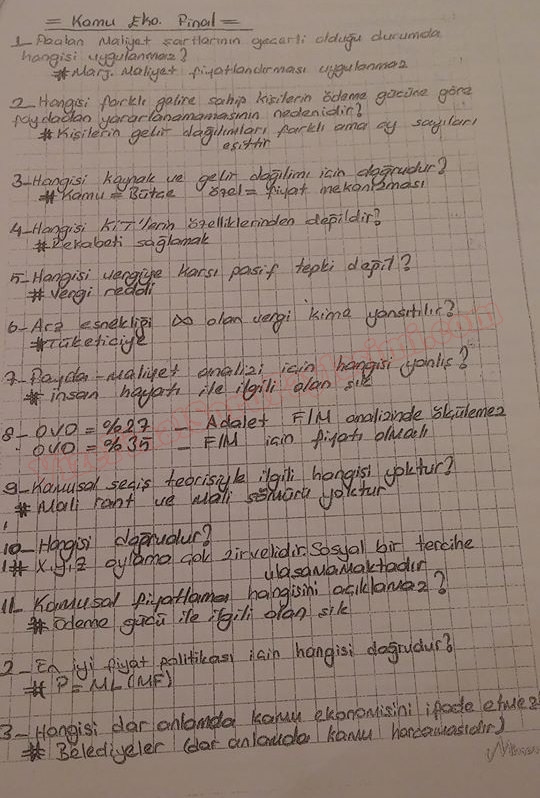 = Kamu Eko. Final =
1_ Azalan Maliyet şartlarının geçerli olduğu durumda
hangisi uygulanmaz?
# Marj. Maliyet fiyatlandırması uygulanmaz
2_ Hangisi farklı gelire sahip kişilerin ödeme gücüne göre
faydadan yararlanamamasının nedenidir?
# Kişilerin gelir dağılımları farklı ama oy sayıları
eşittir
3_ Hangisi kaynak ve gelir dağılımı için doğrudur?
# Kamu = Bütçe özel = fiyat mekanizması
4_ Hangisi KİT'lerin özelliklerinden değildir?
# Rekabeti sağlamak
5_ Hangisi vergiye karşı pasif tepki değil?
# Vergi reddi
6_ Arz esnekliği ∞ olan vergi kime yansıtılır?
# Tüketiciye
7_ Fayda-maliyet analizi için hangisi yanlış?
# insan hayatı ile ilgili olan şık
8_ OVO = %27 _ Adalet F/M analizinde ölçülemez
OVO = %35 _ F/M için fiyatı olmalı
9_ Kamusal seçiş teorisiyle ilgili hangisi yoktur?
# Mali rant ve mali sömürü yoktur
10_ Hangisi doğrudur?
# x,y,z oylama çok zirvelidir. Sosyal bir tercihe
ulaşamamaktadır
11_ Kamusal fiyatlama hangisini açıklamaz?
# ödeme gücü ile ilgili olan şık
2_ En iyi fiyat politikası için hangisi doğrudur?
# P = ML (MF)
3_ Hangisi dar anlamda kamu ekonomisini ifade etmez?
# Belediyeler (dar anlamda kamu harcamasıdır)